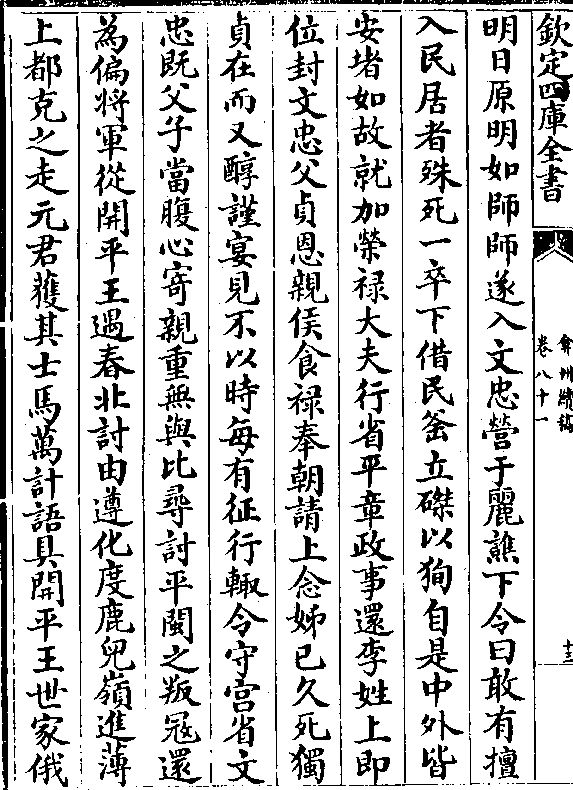 欽定四庫全書
弇州續稿
卷八十一
十三
明日原明如師師遂入文忠營于麗譙下令曰敢有擅
入民居者殊死一卒下借民釜立磔以狥自是中外皆
安堵如故就加榮禄大夫行省平章政事還李姓上即
位封文忠父貞恩親侯食禄奉朝請上念姊已久死獨
貞在而又醇謹宴見不以時每有征行輙令守宫省文
忠既父子當腹心寄親重無與比尋討平閩之叛冦還
為偏將軍從開平王遇春北討由遵化度鹿兒嶺進薄
上都克之走元君獲其士馬萬計語具開平王世家俄